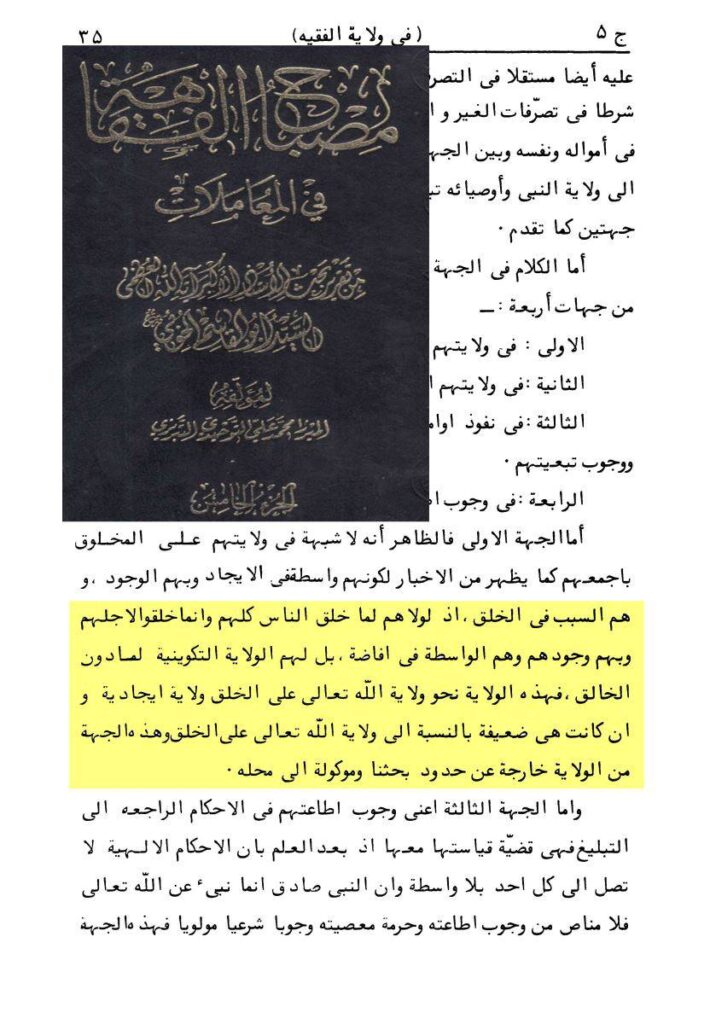 ج ۵
( فى ولاية الفقيه)
۳۵
عليه أيضا مستقلا فى التصر
شرطا فى تصرّفات الغير و ا
فى أمواله ونفسه وبين الجه
الى ولاية النبى وأوصيائه تب
جهتين كما تقدم ۰
أما الكلام فى الجهة
من جهات أربعة : ــ
الاولى : فى ولايتهم
الثانية :فى ولايتهم ا
الثالثة :فى نفوذ اوام
ووجوب تبعيتهم ۰
الرابعة :فى وجوب ا
مصباح الفقاهة
في المعاملات
من تقرير بحث الأستاذ الأكبر آية الله العظمى
السيد أبو القاسم الخوئي
لمؤلفه
الميرزا محمد علي التوحيدي التبريزي
الجزء الخامس
أماالجهة الاولى فالظاهر أنه لا شبهة فى ولايتهم على المخلوق
باجمعهم كما يظهر من الاخبار لكونهم واسطةفى الايجاد وبهم الوجود ،و
هم السبب فى الخلق ،اذ لولاهم لما خلق الناس كلهم وانماخلقوالاجلهم
وبهم وجودهم وهم الواسطة فى افاضة ،بل لهم الولاية التكوينية لمادون
الخالق ،فهذه الولاية نحو ولاية اللّه تعالى على الخلق ولاية ايجادية و
ان كانت هى ضعيفة بالنسبة الى ولاية اللّه تعالى على الخلق وهذه الجهة
من الولاية خارجة عن حدود بحثنا وموكولة الى محله ۰
واما الجهة الثالثة اعنى وجوب اطاعتهم فى الاحكام الراجعه الى
التبليغ فهى قضيّة قياستها معها اذ بعد العلم بان الاحكام الالهية لا
تصل الى كل احد بلا واسطة وان النبى صادق انما نبىء عن اللّه تعالى
فلا مناص من وجوب اطاعته وحرمة معصيته وجوبا شرعيا مولويا فهذه الجهة